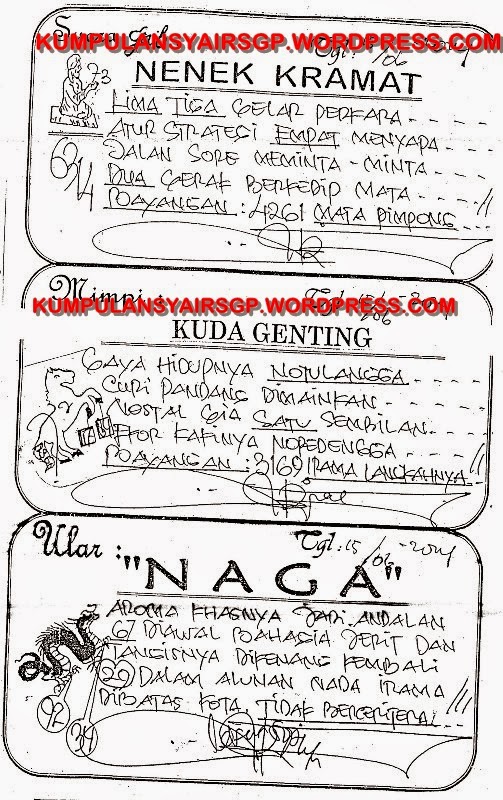 KUMPULANSYAIRSGP.WORDPRESS.COM
Tgl:
73
NENEK KRAMAT
LIMA TIGA GELAR PERKARA
ATUR STRATEGI EMPAT MENYAPA
JALAN SORE MEMINTA - MINTA
DUA GERAK BERKEDIP MATA
BAYANGAN : 4261 MATA PIMPONG
Mimpi :
KUMPULANSYAIRSGP.WORDPRESS.COM
KUDA GENTING
GAYA HIDUPNYA NOTULANGGA
CURI PANDANG DIMAINKAN
NOSTALGIA SATU SEMBILAN
EKOR KAKINYA NOPEDENGGA
BAYANGAN : 3169 IRAMA LANGKAHNYA
Ular :
Tgl: 15/06-2014
"NAGA"
AROMA KHASNYA JADI ANDALAN
67 DIAWAL BAHAGIA JERIT DAN
TANGISNYA DIKENANG KEMBALI
29 DALAM ALUNAN NADA IRAMA
DIBATAS KOTA TIDAK BERCERITERA
92
34